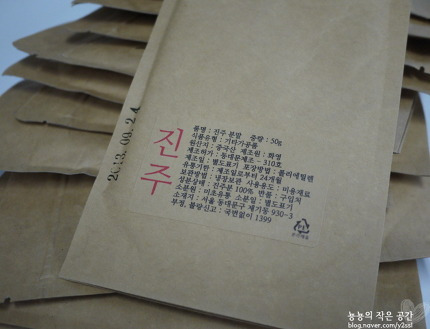 진주
품명 : 진주 분말 중량 : 50g
식품유형 : 기타가공품
원산지 : 중국산 제조원 : 화영
제조허가 : 동대문제조 - 310호
제조일 : 별도표기 포장방법 : 폴리에틸렌
유통기한 : 제조일로부터 24개월
보관방법 : 냉장보관 사용용도 : 미용재료
성분상세 : 진주분 100% 반품 : 구입처
소분원 : 미조유통 소분일 : 별도표기
소재지 : 서울 동대문구 제기동 930-3
부정, 불량신고 : 국번없이 1399
2013. 09. 2
눙눙의 작은 공간
blog.naver.com/y2ssl